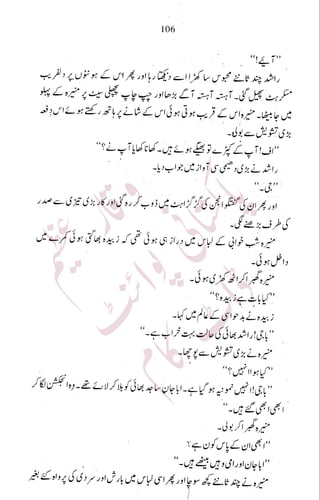 106
’’آیئے!‘‘
راشد چند ثانئے محبوس سا کھڑا اسے دیکھتا رہا اور پھر اس کے ہونٹوں پر دلفریب
مسکراہٹ پھیل گئی۔ آہستہ آہستہ آگے بڑھا اور چپ چاپ پچھلی سیٹ پر منیرہ کے پہلو
میں جا بیٹھا۔ منیرہ اس کے قریب ہوتی ہوئی اس کے شانے پر ہاتھ رکھتے ہوئے اس دفعہ
بڑی تشویش سے بولی۔
’’اف! آپ کے کپڑے تو بھیگے ہوئے ہیں۔ کھانا کھایا آپ نے؟‘‘
راشد نے بڑی دھیمی سی آواز میں جواب دیا۔
’’جی۔‘‘
اور پھر ان کی گفتگو انجن کی گڑگڑاہٹ میں ڈوب کر رہ گئی اور کار بڑی تیزی سے صدر
کی طرف بڑھنے لگی۔
منیرہ شب خوابی کے لباس میں دراز ہی ہوئی تھی کہ زبیدہ بھاگتی ہوئی کمرے میں
داخل ہوئی۔
منیرہ گھبرا کر اٹھ کھڑی ہوئی۔
’’کیا بات ہے زبیدہ؟‘‘
زبیدہ نے بدحواسی کے عالم میں کہا۔
’’باجی! راشد بھائی کی حالت بہت خراب ہے۔‘‘
منیرہ نے بڑی تشویش سے پوچھا۔
’’کیا ہوا انہیں؟‘‘
’’باجی! انہیں نمونیہ ہو گیا ہے۔ ابا جان ساجد بھائی کو بلا کر لائے تھے۔ وہ انجکشن لگا کر
ابھی ابھی گئے ہیں۔‘‘
منیرہ گھبرا کر بولی۔
’’ابھی ان کے پاس کون ہے؟‘‘
’’ابا جان اور امی وہیں بیٹھے ہیں۔‘‘
منیرہ نے چند ثانئے کچھ سوچا اور پھر اسی لباس میں بارش اور سردی کی پرواہ کئے بغیر
پاکستانی پوائنٹ
ڈاٹ کام